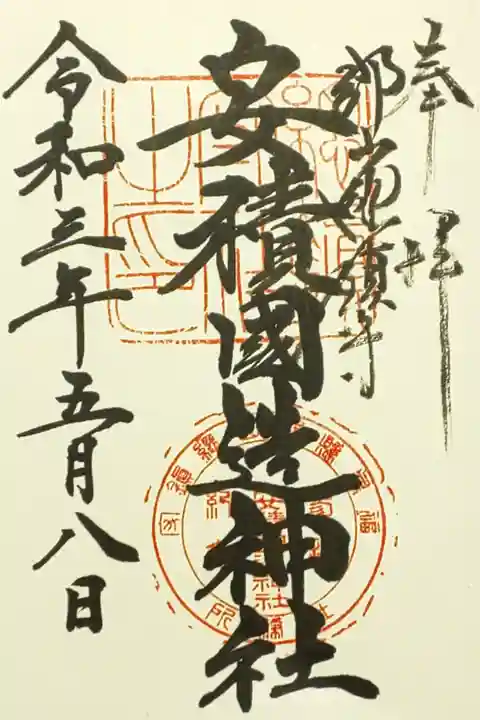 奉拝
郡山總鎮守
安積國造神社
令和三年五月八日